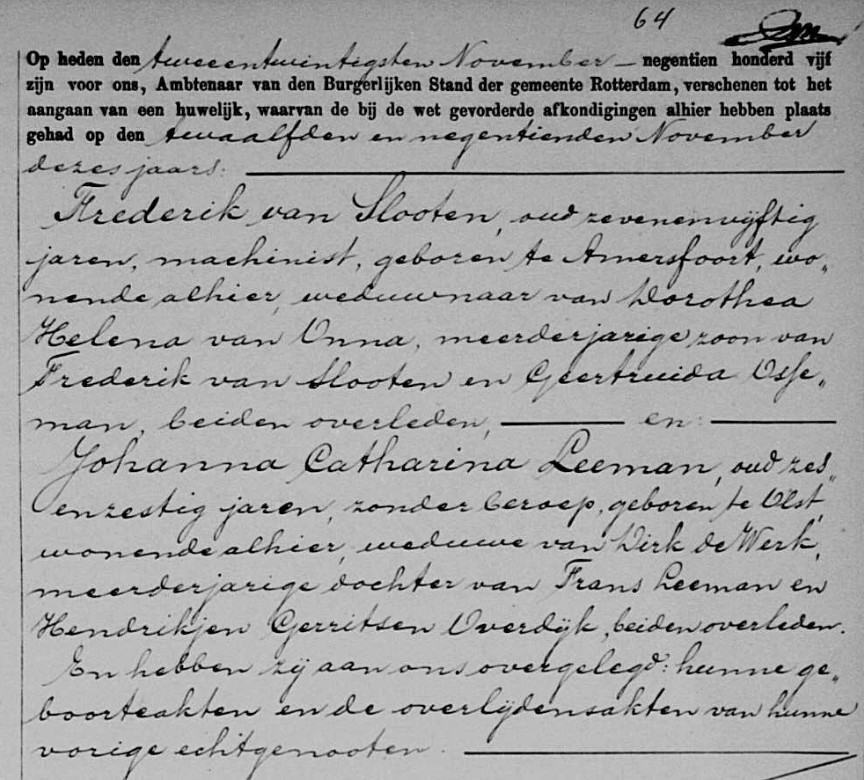 64
Op heden den tweeentwintigsten November – negentien honderd vijf
zijn voor ons, Ambtenaar van den Burgerlijken Stand der gemeente Rotterdam, verschenen tot het
aangaan van een huwelijk, waarvan de bij de wet gevorderde afkondigingen alhier hebben plaats
gehad op den twaalfden en negentienden November
dezes jaars.
Frederik van Slooten, oud zevenenvijftig
jaren, machinist, geboren te Amersfoort, wo„
nende alhier, weduwnaar van Dorothea
Helena van Unna, meerderjarige zoon van
Frederik van Slooten en Geertruida Osse„
man, beiden overleden, en:
Johanna Catharina Leeman, oud zes„
enzestig jaren, zonder beroep, geboren te Olst,
wonende alhier, weduwe van Dirk de Werk,
meerderjarige dochter van Frans Leeman en
Hendrikjen Gerritsen Overdijk, beiden overleden.
En hebben zij aan ons overgelegd: hunne ge„
boorteakten en de overlijdensakten van hunne
vorige echtgenooten.